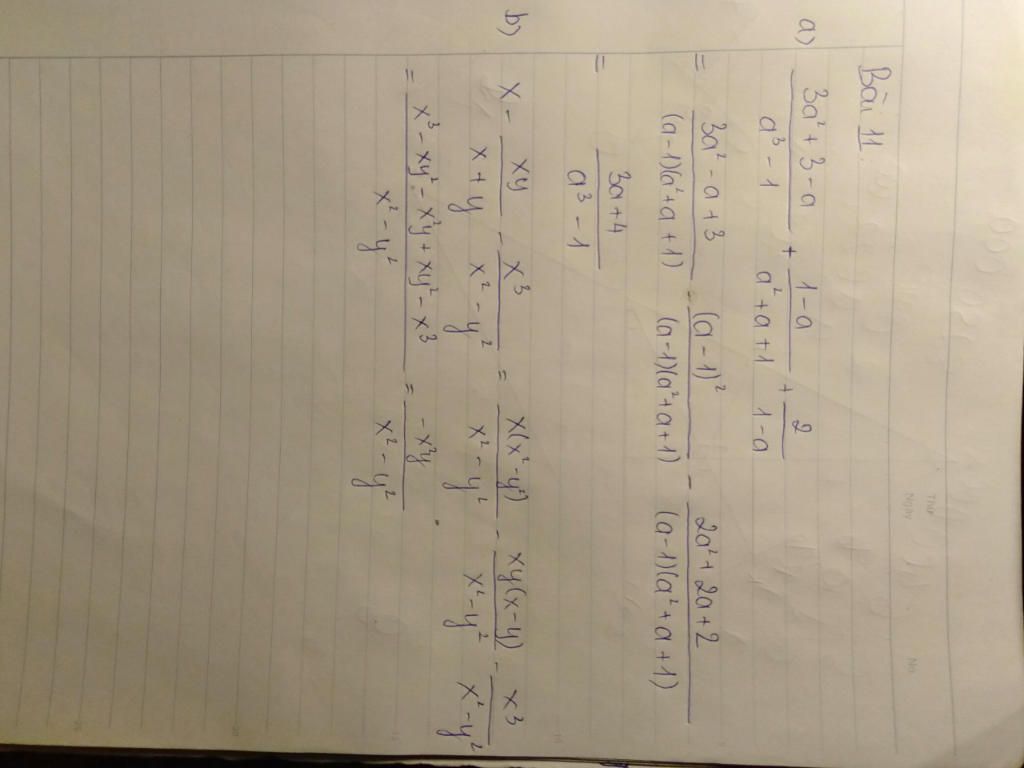 Thứ
Ngày
No.
Bài 11.
a) (3a² + 3 - a)/(a³ - 1) + (1 - a)/(a² + a + 1) + 2/(1 - a)
= (3a² - a + 3)/((a-1)(a²+a+1)) - (a-1)²/((a-1)(a²+a+1)) - (2a² + 2a + 2)/((a-1)(a²+a+1))
= (3a + 4)/(a³ - 1)
b) x - xy/(x + y) - x³/(x² - y²) = x(x² - y²)/(x² - y²) - xy(x - y)/(x² - y²) - x³/(x² - y²)
= (x³ - xy² - x²y + xy² - x³)/(x² - y²) = -x²y/(x² - y²)